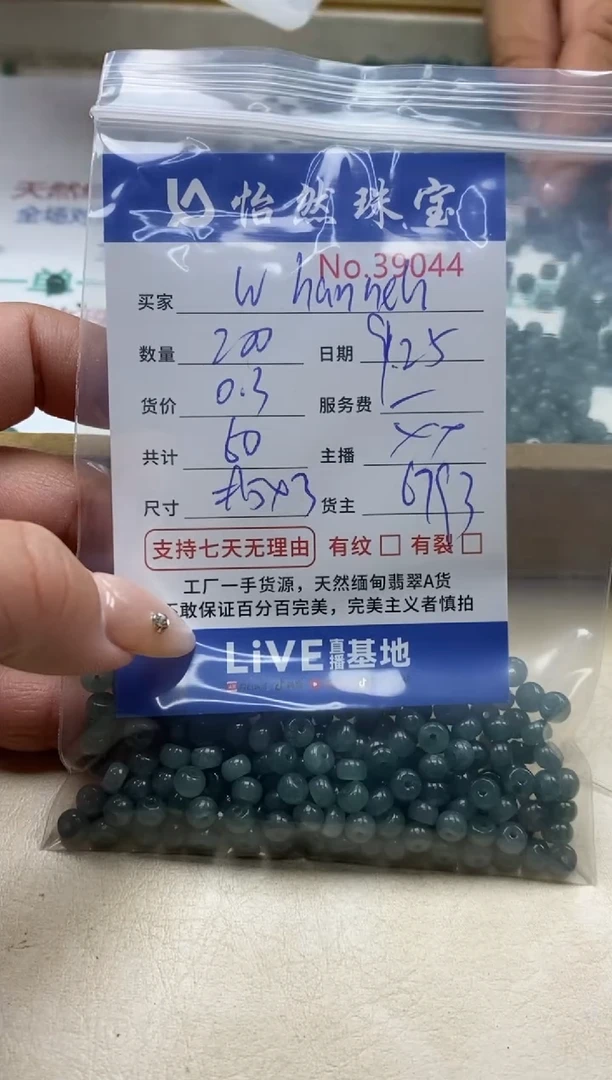 怡然珠宝
No.39044
买家 W hanneh
数量 200 日期 9.25
货价 0.3 服务费 —
共计 60 主播 XX
尺寸 5x3 货主 6793
支持七天无理由 有纹 有裂
工厂一手货源，天然缅甸翡翠A货
敢保证百分百完美，完美主义者慎拍
LiVE直播基地
天然
全场